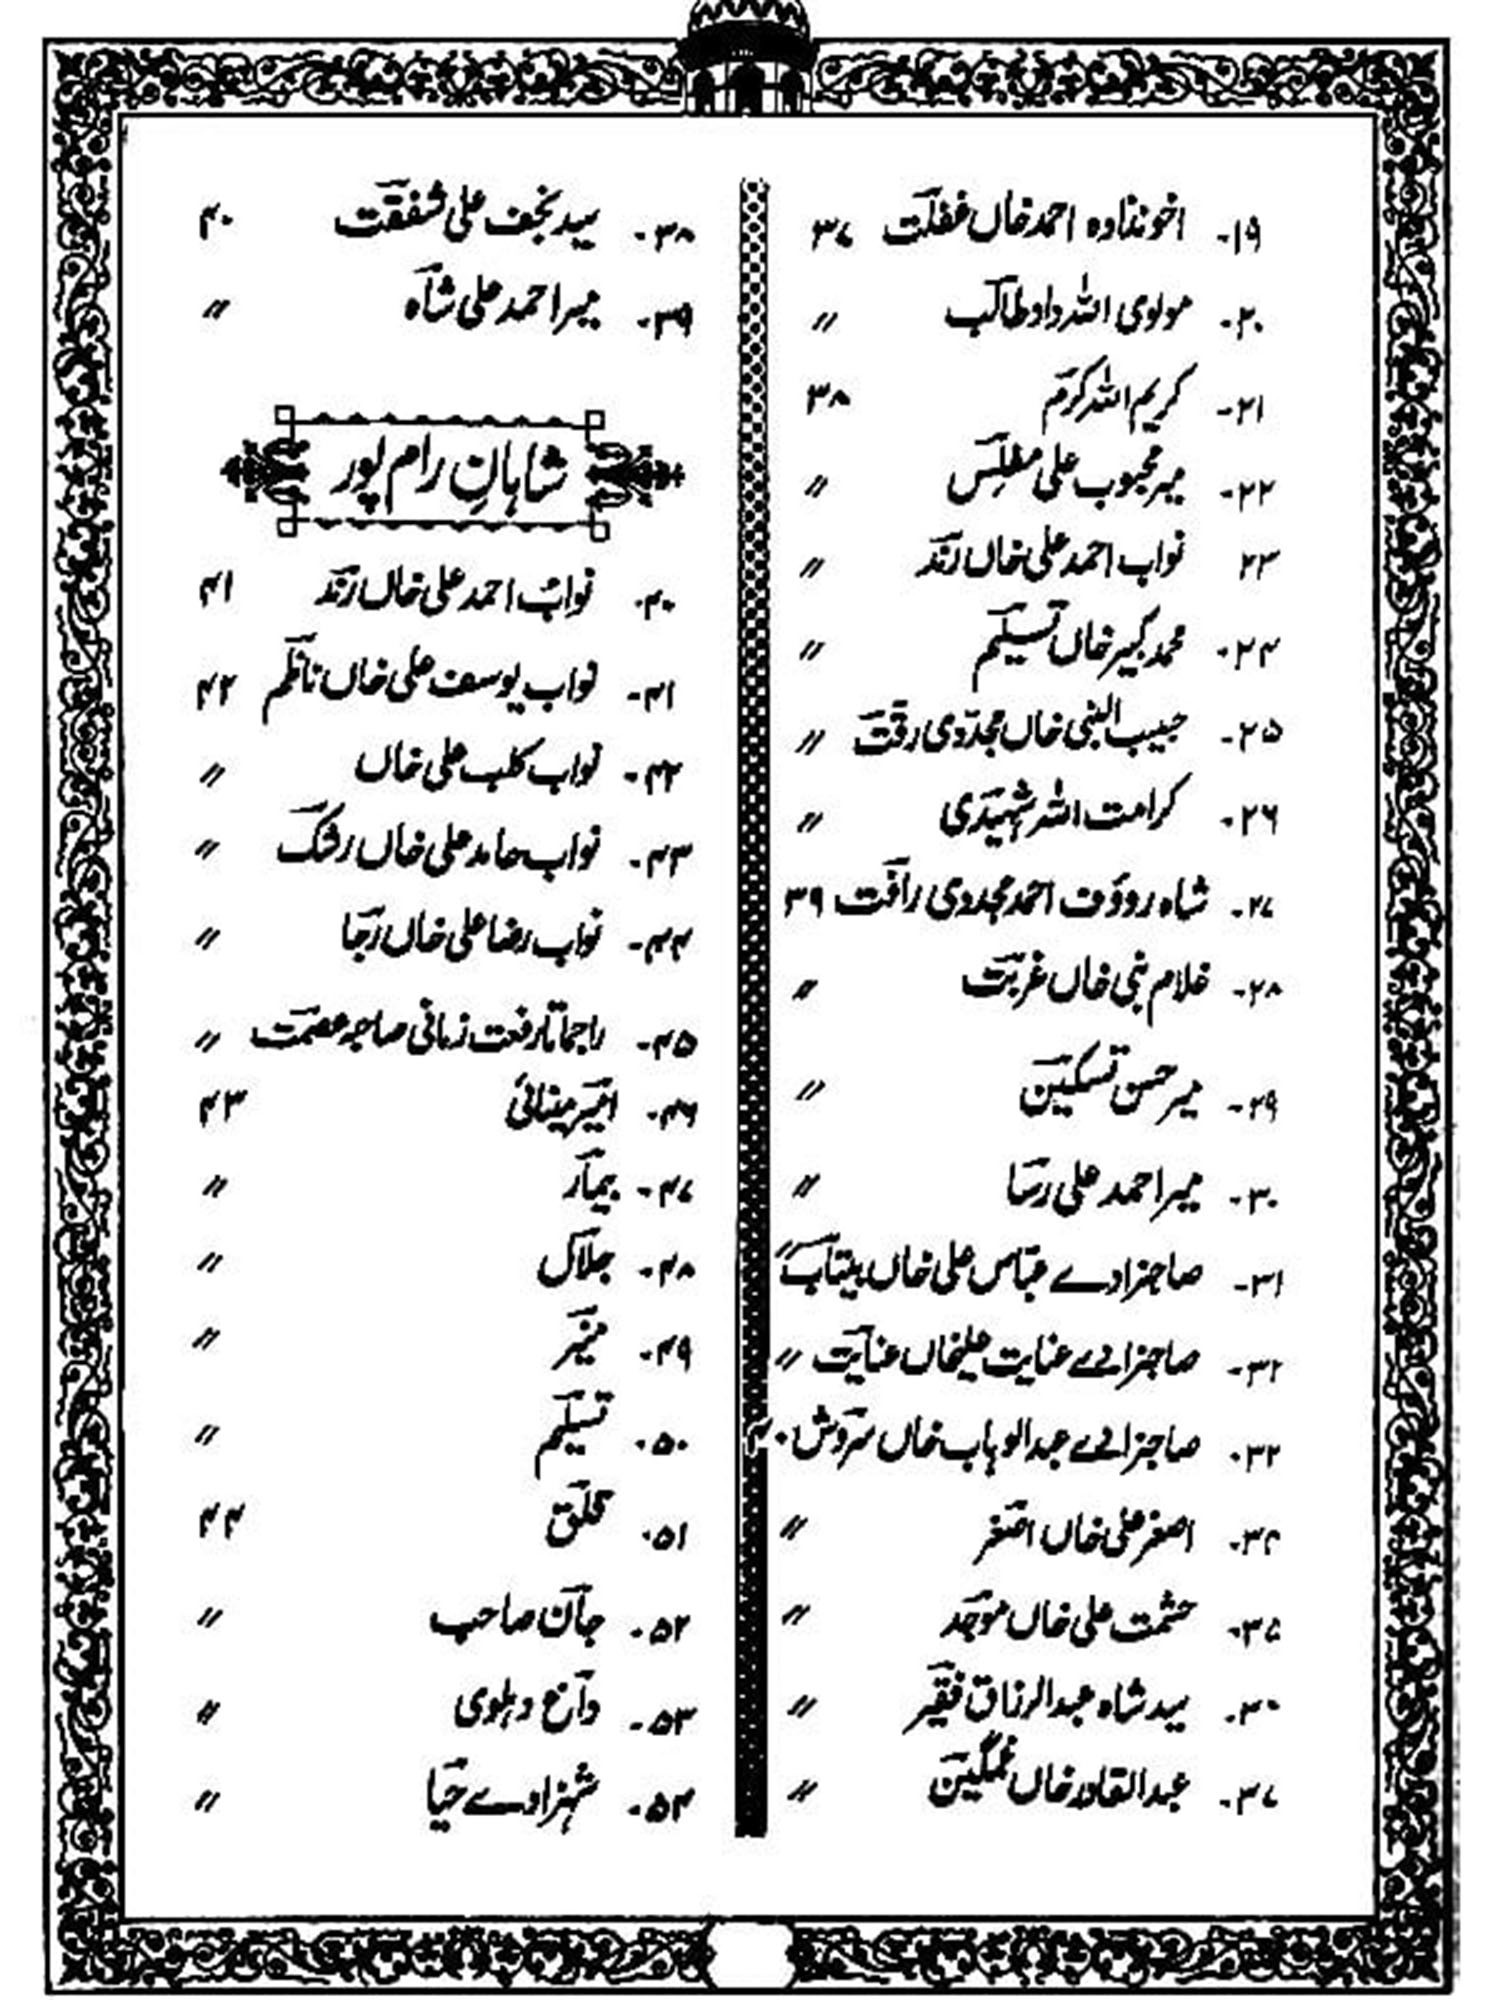 ۱۹- اخوندزادہ احمد خاں غفلت ۳۷
۲۰- مولوی اللہ داد طالب 〃
۲۱- کریم اللہ کرم ۳۸
۲۲- میر محبوب علی مفلس 〃
۲۳ نواب احمد علی خاں رند 〃
۲۴- محمد کبیر خاں تسلیم 〃
۲۵- حبیب النبی خاں مجددی رقت 〃
۲۶- کرامت اللہ شہیدی 〃
۲۷- شاہ رووف احمد مجددی رافت ۳۹
۲۸- غلام نبی خاں غربت 〃
۲۹- میر حسن تسکین 〃
۳۰- میر احمد علی رسا 〃
۳۱- صاحبزادے عباس علی خاں بیتاب 〃
۳۲- صاحبزادے عنایت علیخاں عنایت 〃
۳۲- صاحبزادے عبدالوہاب خاں سروش ۴۰
۳۴- اصغر علی خاں اصغر 〃
۳۵- حشمت علی خاں موجد 〃
۳۶- سید شاہ عبدالرزاق فقیر 〃
۳۷- عبدالقادر خاں غمگین 〃
۳۸- سید نجف علی شفقت ۴۰
۳۹- میر احمد علی شاہ 〃
شاہانِ رام پور
۴۰- نواب احمد علی خاں رند ۴۱
۴۱- نواب یوسف علی خاں ناظم ۴۲
۴۲- نواب کلب علی خاں 〃
۴۳- نواب حامد علی خاں رشک 〃
۴۴- نواب رضا علی خاں رجا 〃
۴۵- راجماتا رفعت زمانی صاحبہ عصمت 〃
۴۶- امیر مینائی ۴۳
۴۷- بیمار 〃
۴۸- جلال 〃
۴۹- منیر 〃
۵۰- تسلیم 〃
۵۱- قلق ۴۴
۵۲- جان صاحب 〃
۵۳- داغ دہلوی 〃
۵۴- شہزادے حیا 〃